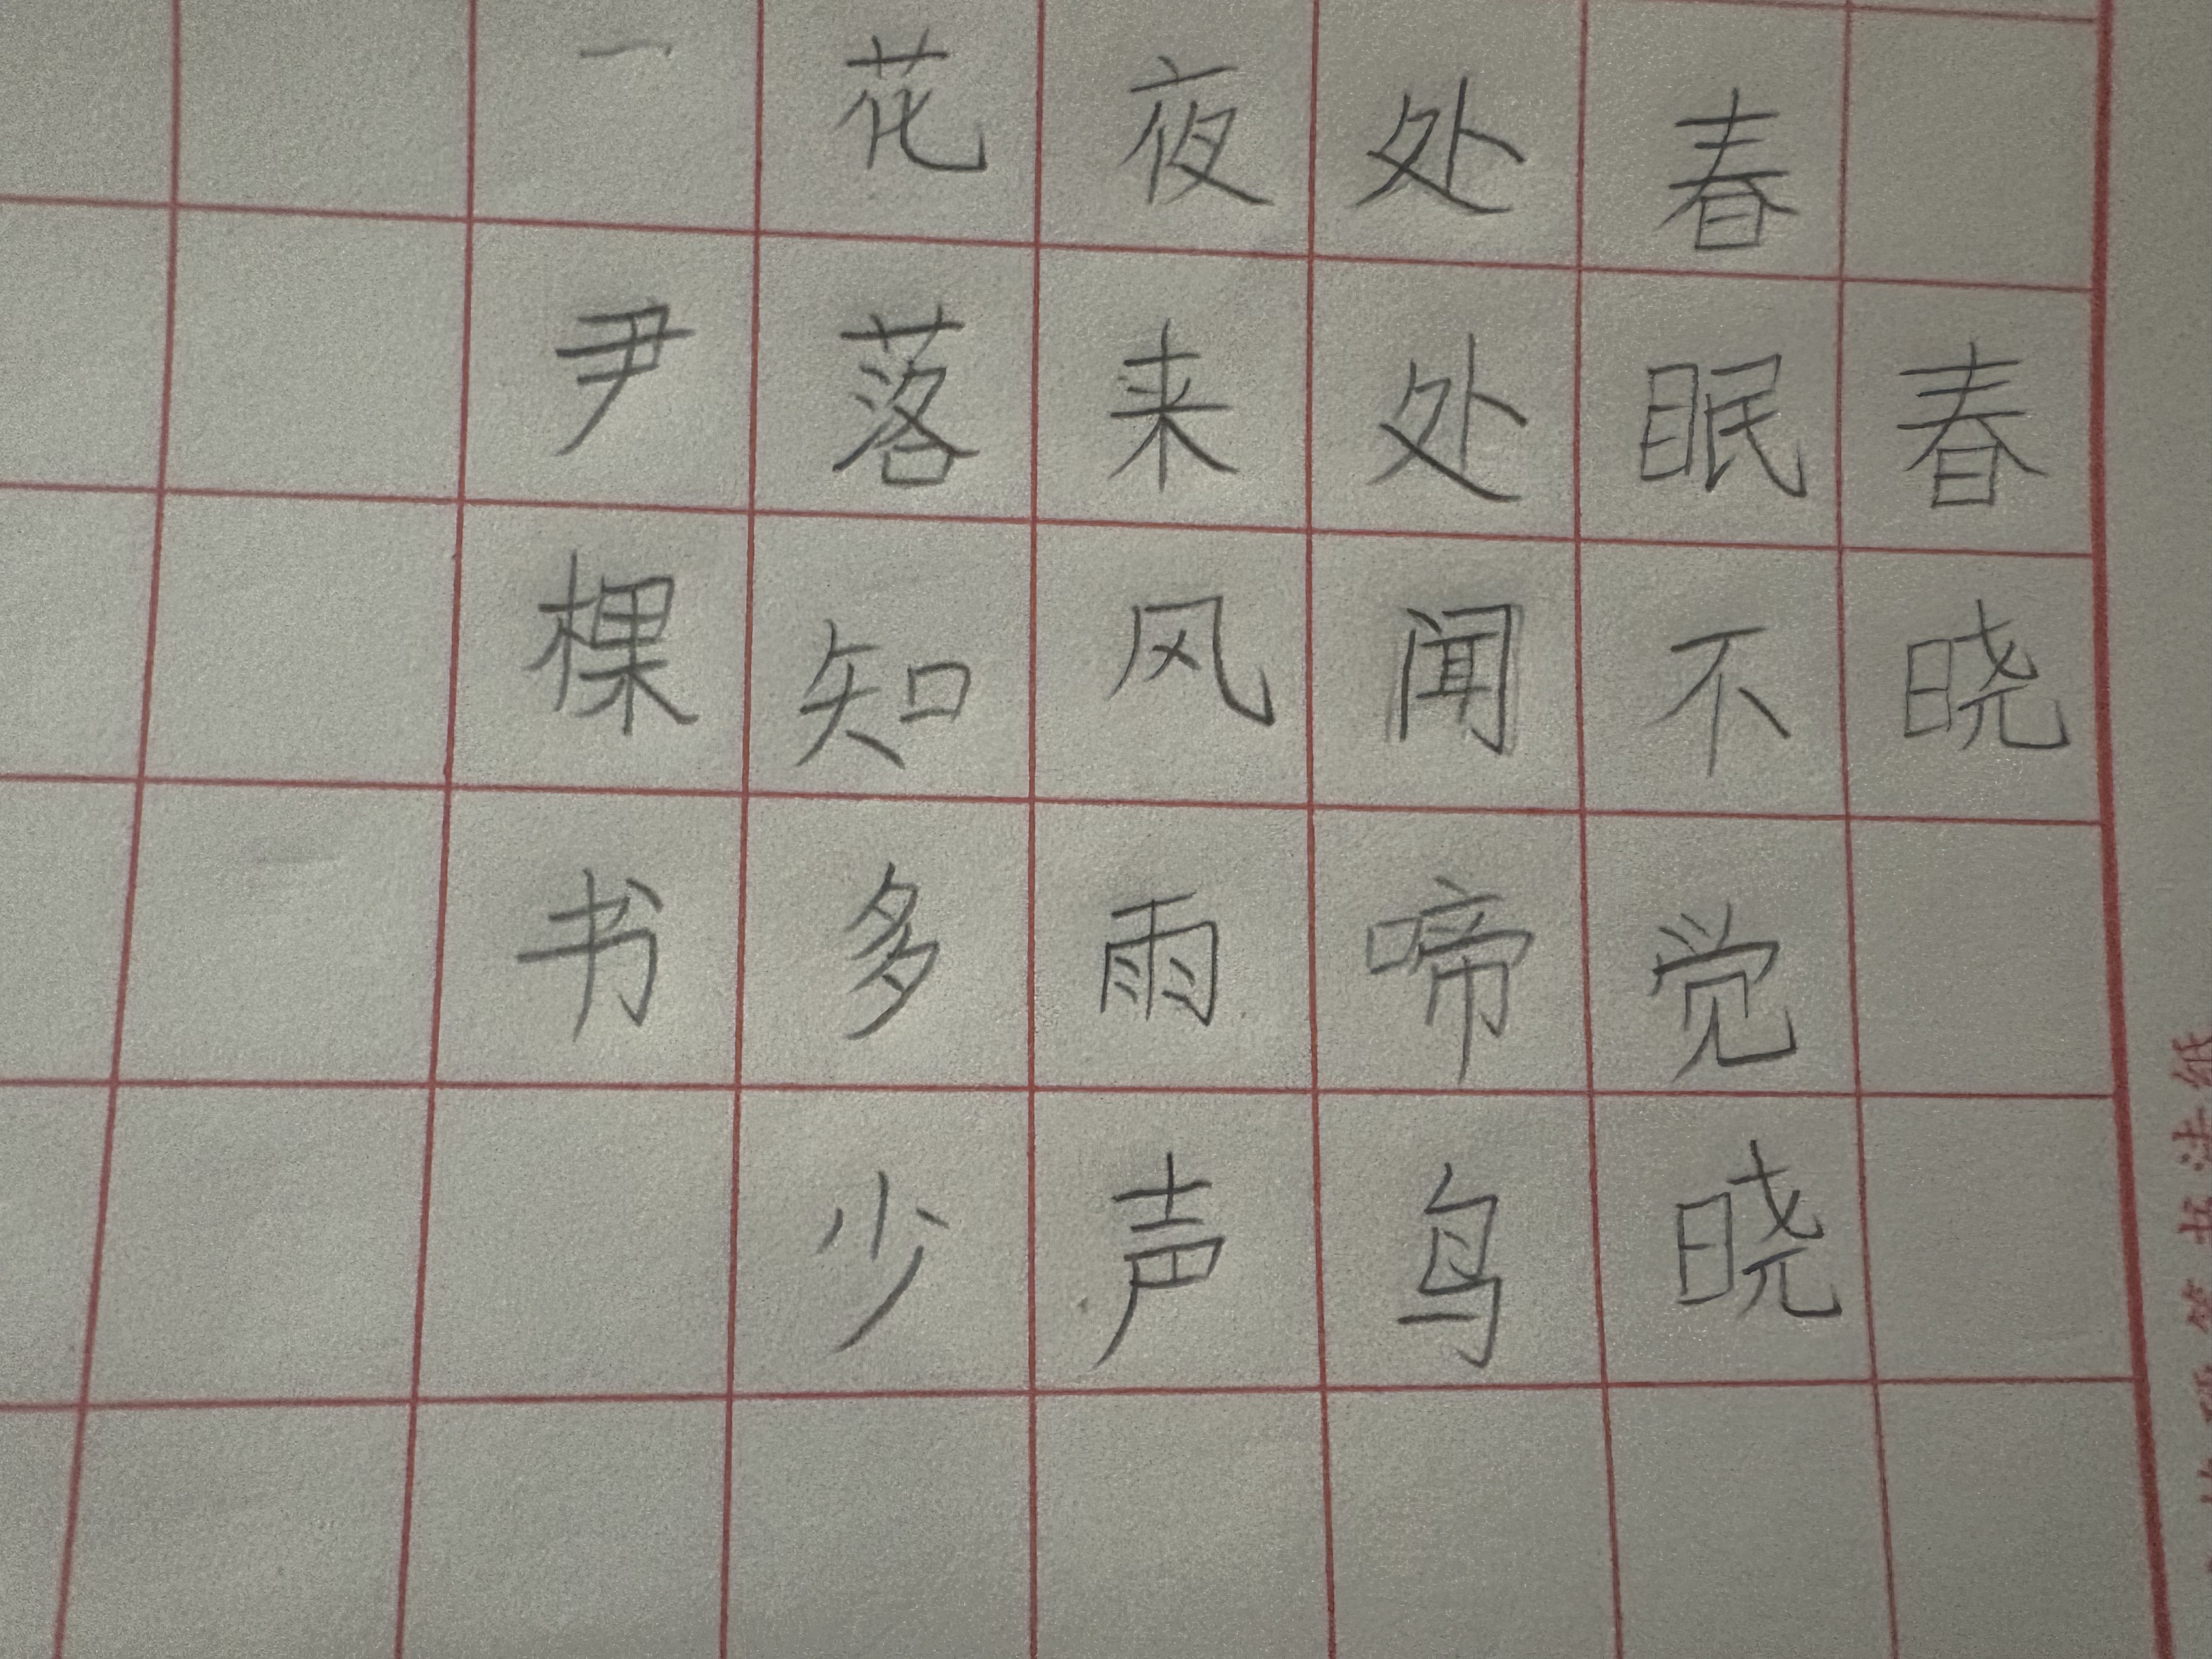 春晓
春眠不觉晓
处处闻啼鸟
夜来风雨声
花落知多少
一
尹棵书